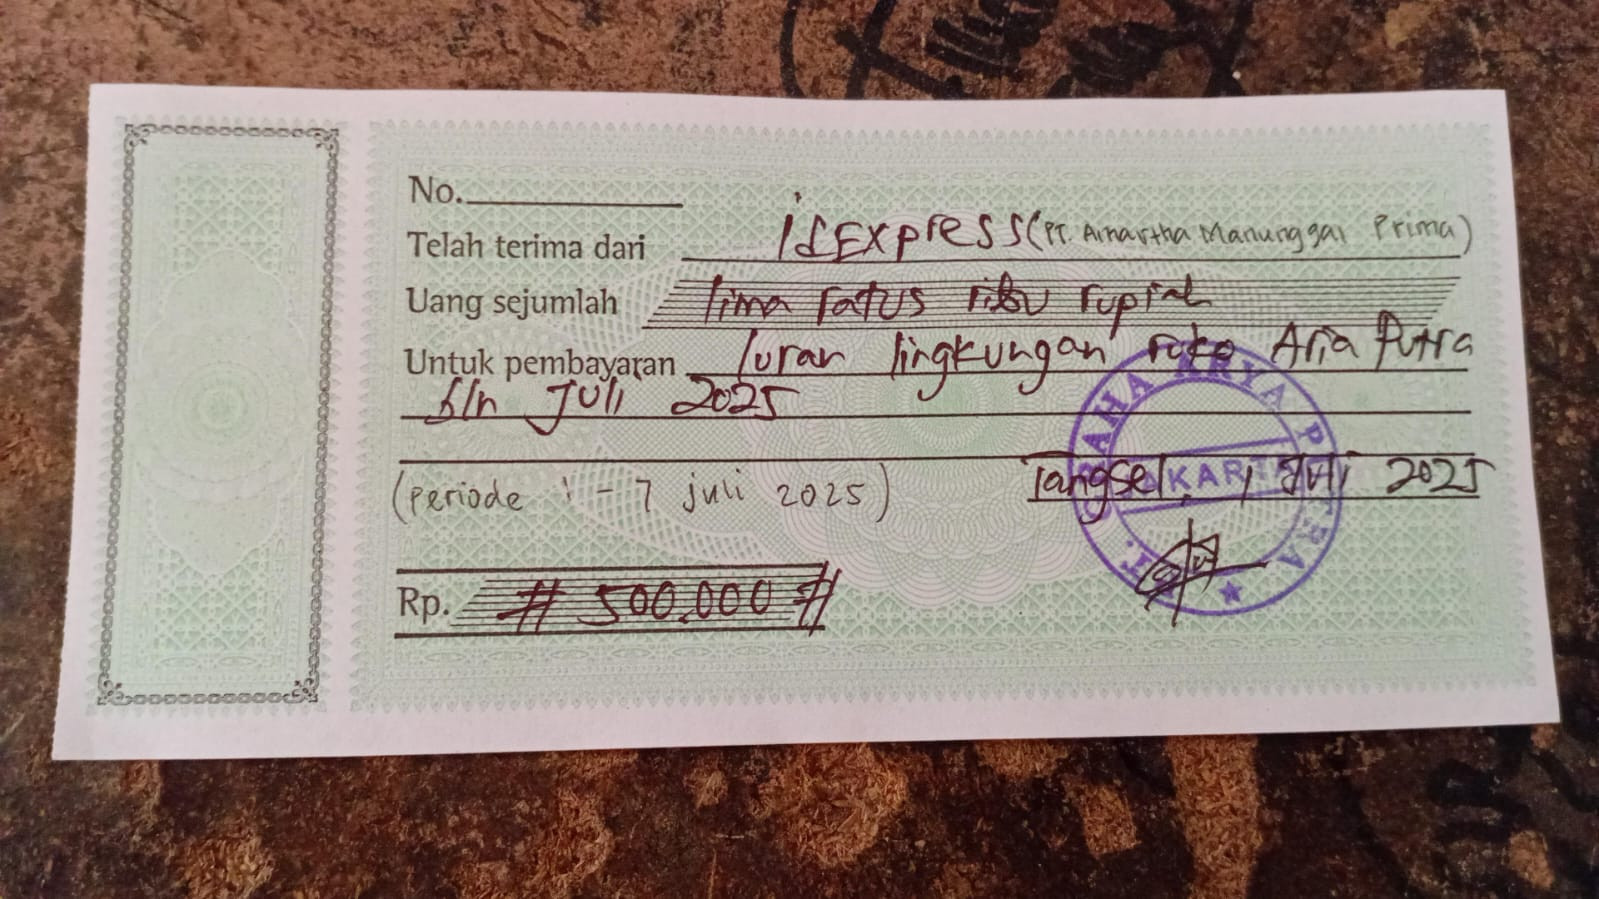 No.
Telah terima dari idExpress (PT. Amartha Manunggal Prima)
Uang sejumlah lima ratus ribu rupiah
Untuk pembayaran Iuran lingkungan ruko Aria Putra
bln Juli 2025
(Periode 1 - 7 juli 2025)
Tangsel, 1 Juli 2025
GRAHA KRYA PUTRA
JAKARTA
Rp. # 500.000 #